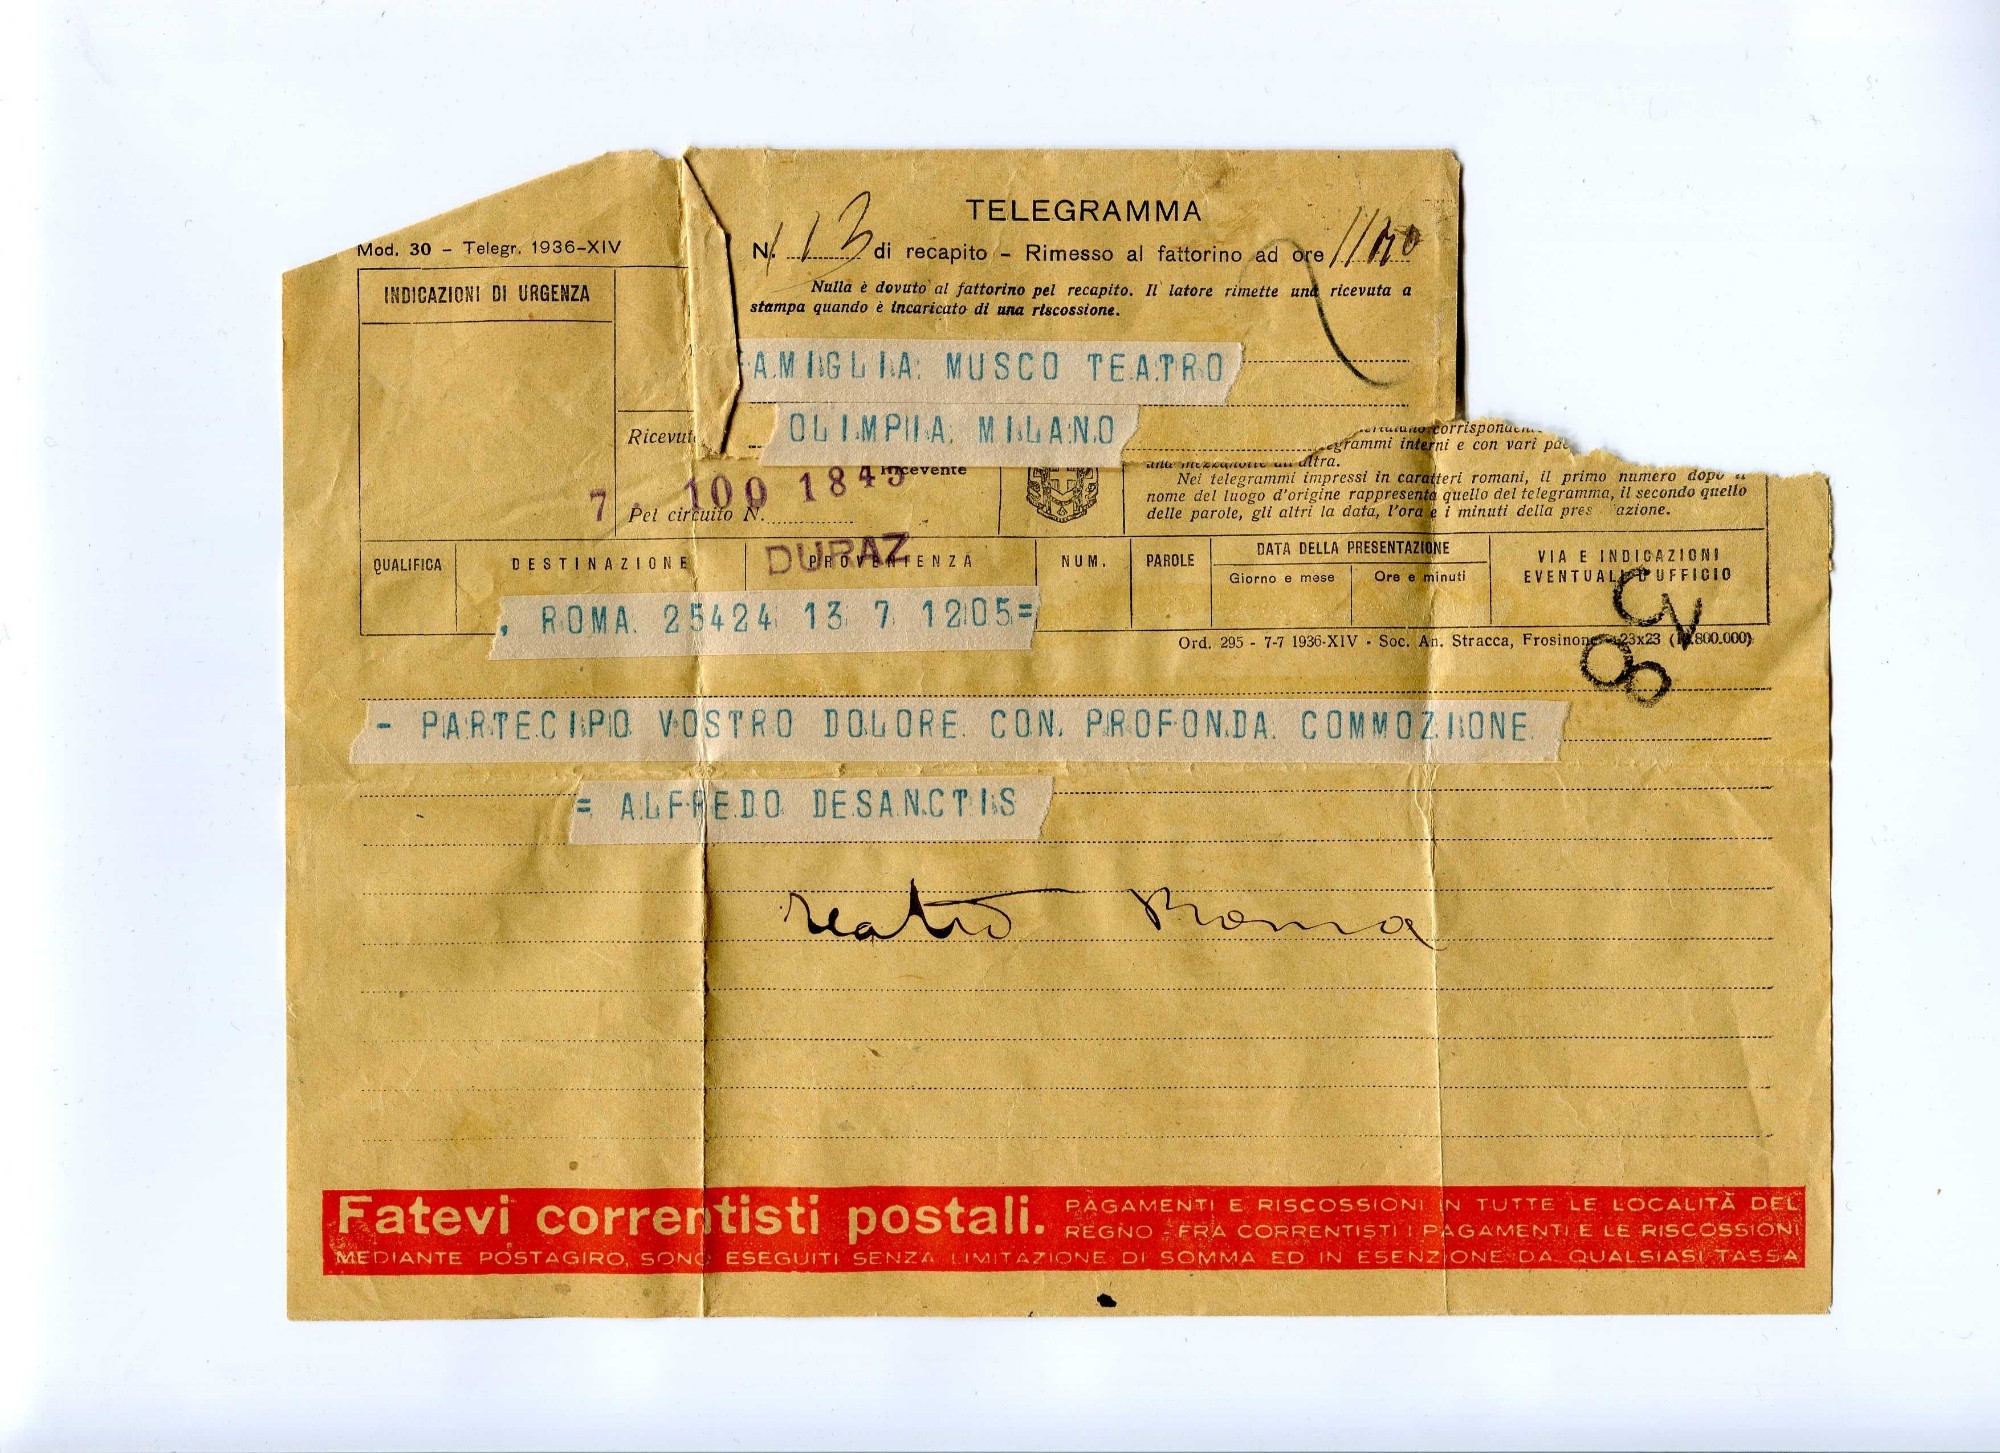 TELEGRAMMA
Mod. 30 – Telegr. 1936-XIV
N. 113 di recapito – Rimesso al fattorino ad ore
INDICAZIONI DI URGENZA
Nulla è dovuto al fattorino pel recapito. Il latore rimette una ricevuta a
stampa quando è incaricato di una riscossione.
AMIGLIA MUSCO TEATRO
OLIMPIA MILANO
corrispond
egrammi interni e con vari pa
una mezzanotte all'altra.
Nei telegrammi impressi in caratteri romani, il primo numero dopo il
nome del luogo d'origine rappresenta quello del telegramma, il secondo quello
delle parole, gli altri la data, l'ora e i minuti della pres azione.
Ricevut
Ricevente
7. 100 1845
Pel circuito N.
DURAZ
QUALIFICA DESTINAZIONE PROVENIENZA NUM. PAROLE DATA DELLA PRESENTAZIONE VIA E INDICAZIONI
Giorno e mese Ore e minuti EVENTUALI D'UFFICIO
, ROMA 25424 13 7 1205=
Ord. 295 - 7-7 1936-XIV - Soc. An. Stracca, Frosinone 23x23 ( .800.000)
- PARTECIPO VOSTRO DOLORE CON PROFONDA COMMOZIONE
= ALFREDO DESANCTIS
Teatro Roma
Fatevi correntisti postali. PAGAMENTI E RISCOSSIONI IN TUTTE LE LOCALITÀ DEL
REGNO - FRA CORRENTISTI I PAGAMENTI E LE RISCOSSIONI
MEDIANTE POSTAGIRO, SONO ESEGUITI SENZA LIMITAZIONE DI SOMMA ED IN ESENZIONE DA QUALSIASI TASSA